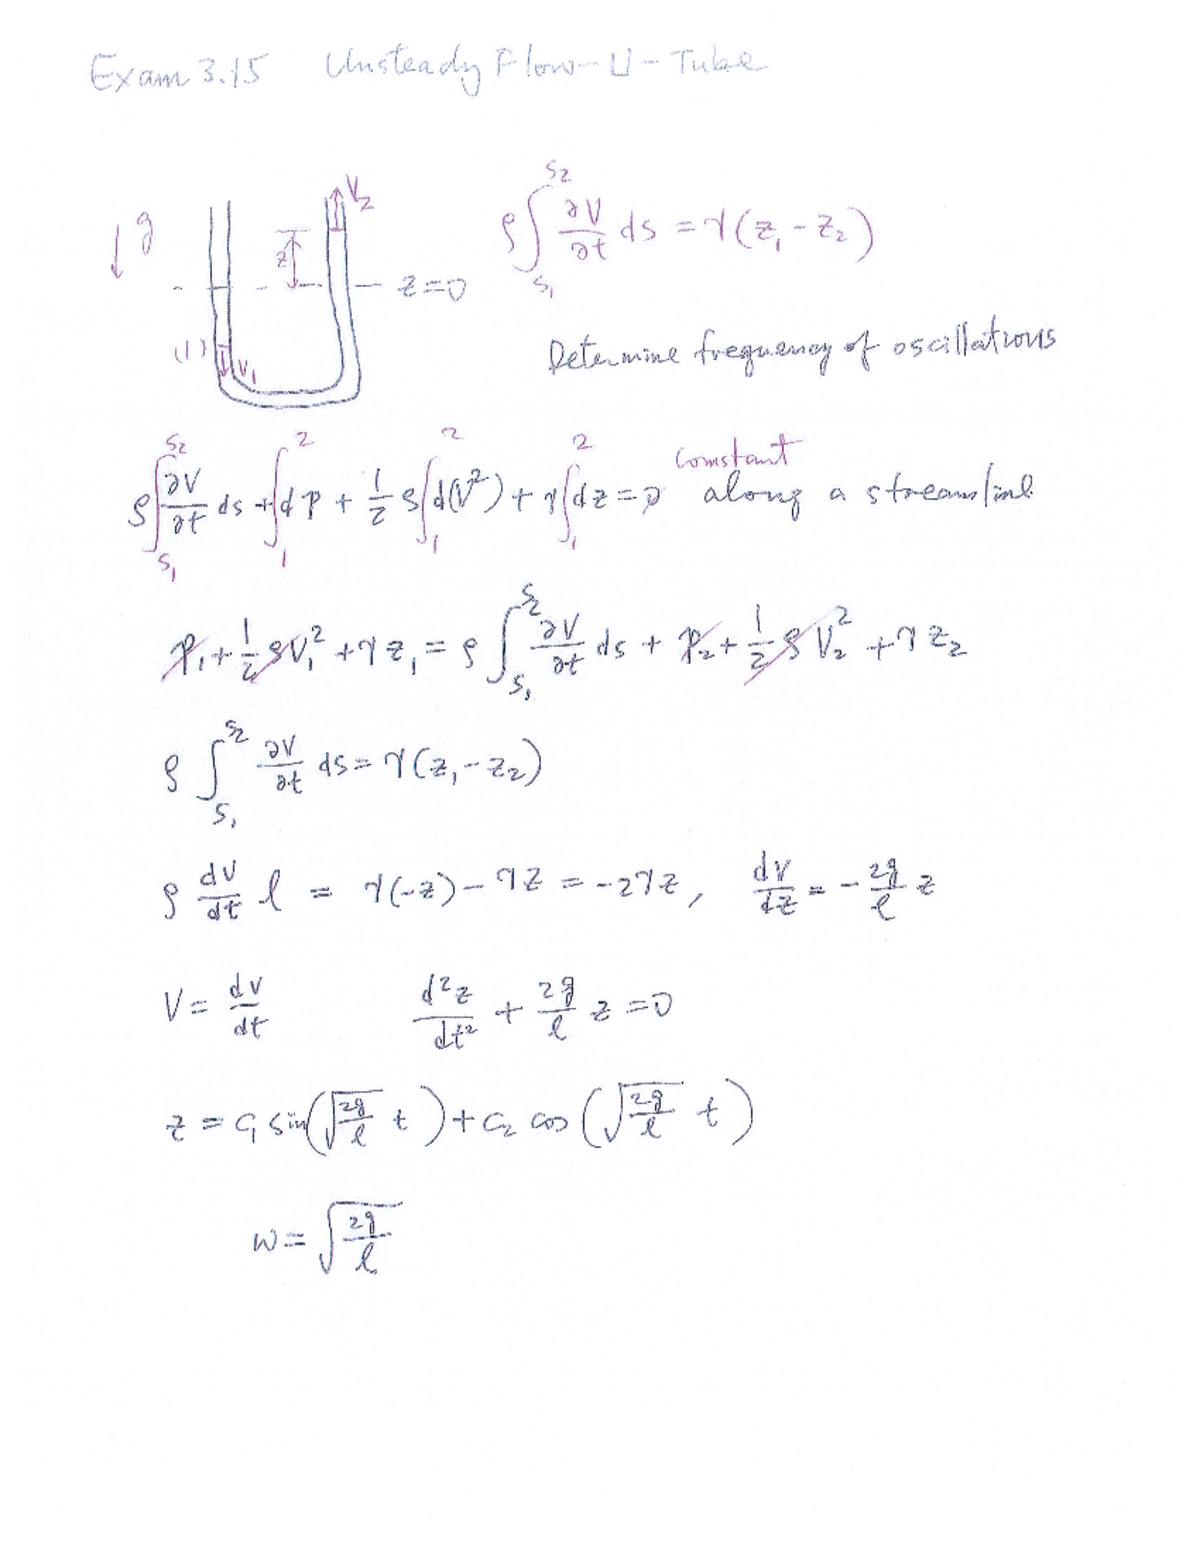 Exam 3.15 Unsteady Flow - U - Tube
g
V₂
z
z=0
(1)
V₁
ρ∫_{S₁}^{S₂} ∂V/∂t ds = γ(z₁-z₂)
Determine frequency of oscillations
constant
ρ∫_{S₁}^{S₂} ∂V/∂t ds + ∫₁² dp + 1/2 ρ∫₁² d(V²) + γ∫₁² dz = 0 along a streamline
p₁ + 1/2 ρV₁² + γz₁ = ρ∫_{S₁}^{S₂} ∂V/∂t ds + p₂ + 1/2 ρV₂² + γz₂
ρ∫_{S₁}^{S₂} ∂V/∂t ds = γ(z₁-z₂)
ρ dV/dt l = γ(-z) - γz = -2γz, dv/dz = - 2g/l z
V = dv/dt d²z/dt² + 2g/l z = 0
z = C₁ sin(√(2g/l) t) + C₂ cos(√(2g/l) t)
w = √(2g/l)